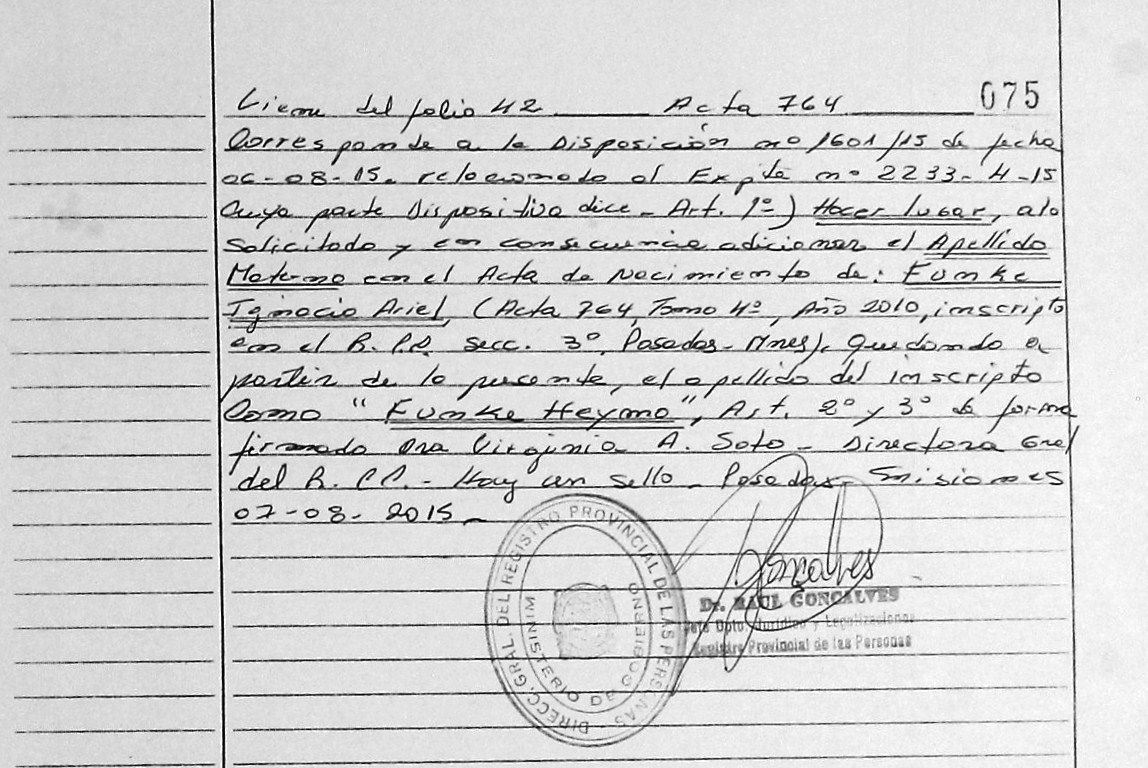 Viene del folio 42 ____ Acta 764 ____ 075
Corresponde a la Disposición nº 1601/15 de fecha
06-08-15. relacionado al Expte nº 2233-4-15
Cuya parte Dispositiva dice - Art. 1º) Hacer lugar, a lo
solicitado y en consecuencia adicionar el Apellido
Materno en el Acta de Nacimiento de: Funke
Ignacio Ariel, (Acta 764, Tomo 4º, Año 2010, inscripto
en el R.P.P. Secc. 3º, Posadas - Mnes), Quedando a
partir de la presente, el apellido del inscripto
Como "Funke Heymo", Art. 2º y 3º de forma
firmado Dra Virginia A. Soto - Directora Gral
del R.PP. - Hay un sello - Posadas - Misiones
07-08-2015 -
DIRECC. GRAL. DEL REGISTRO PROVINCIAL DE LAS PERSONAS
MINISTERIO DE GOBIERNO
Goncalves
Dr. RAUL GONCALVES
Jefe Dpto. Jurídico y Legalizaciones
Registro Provincial de las Personas